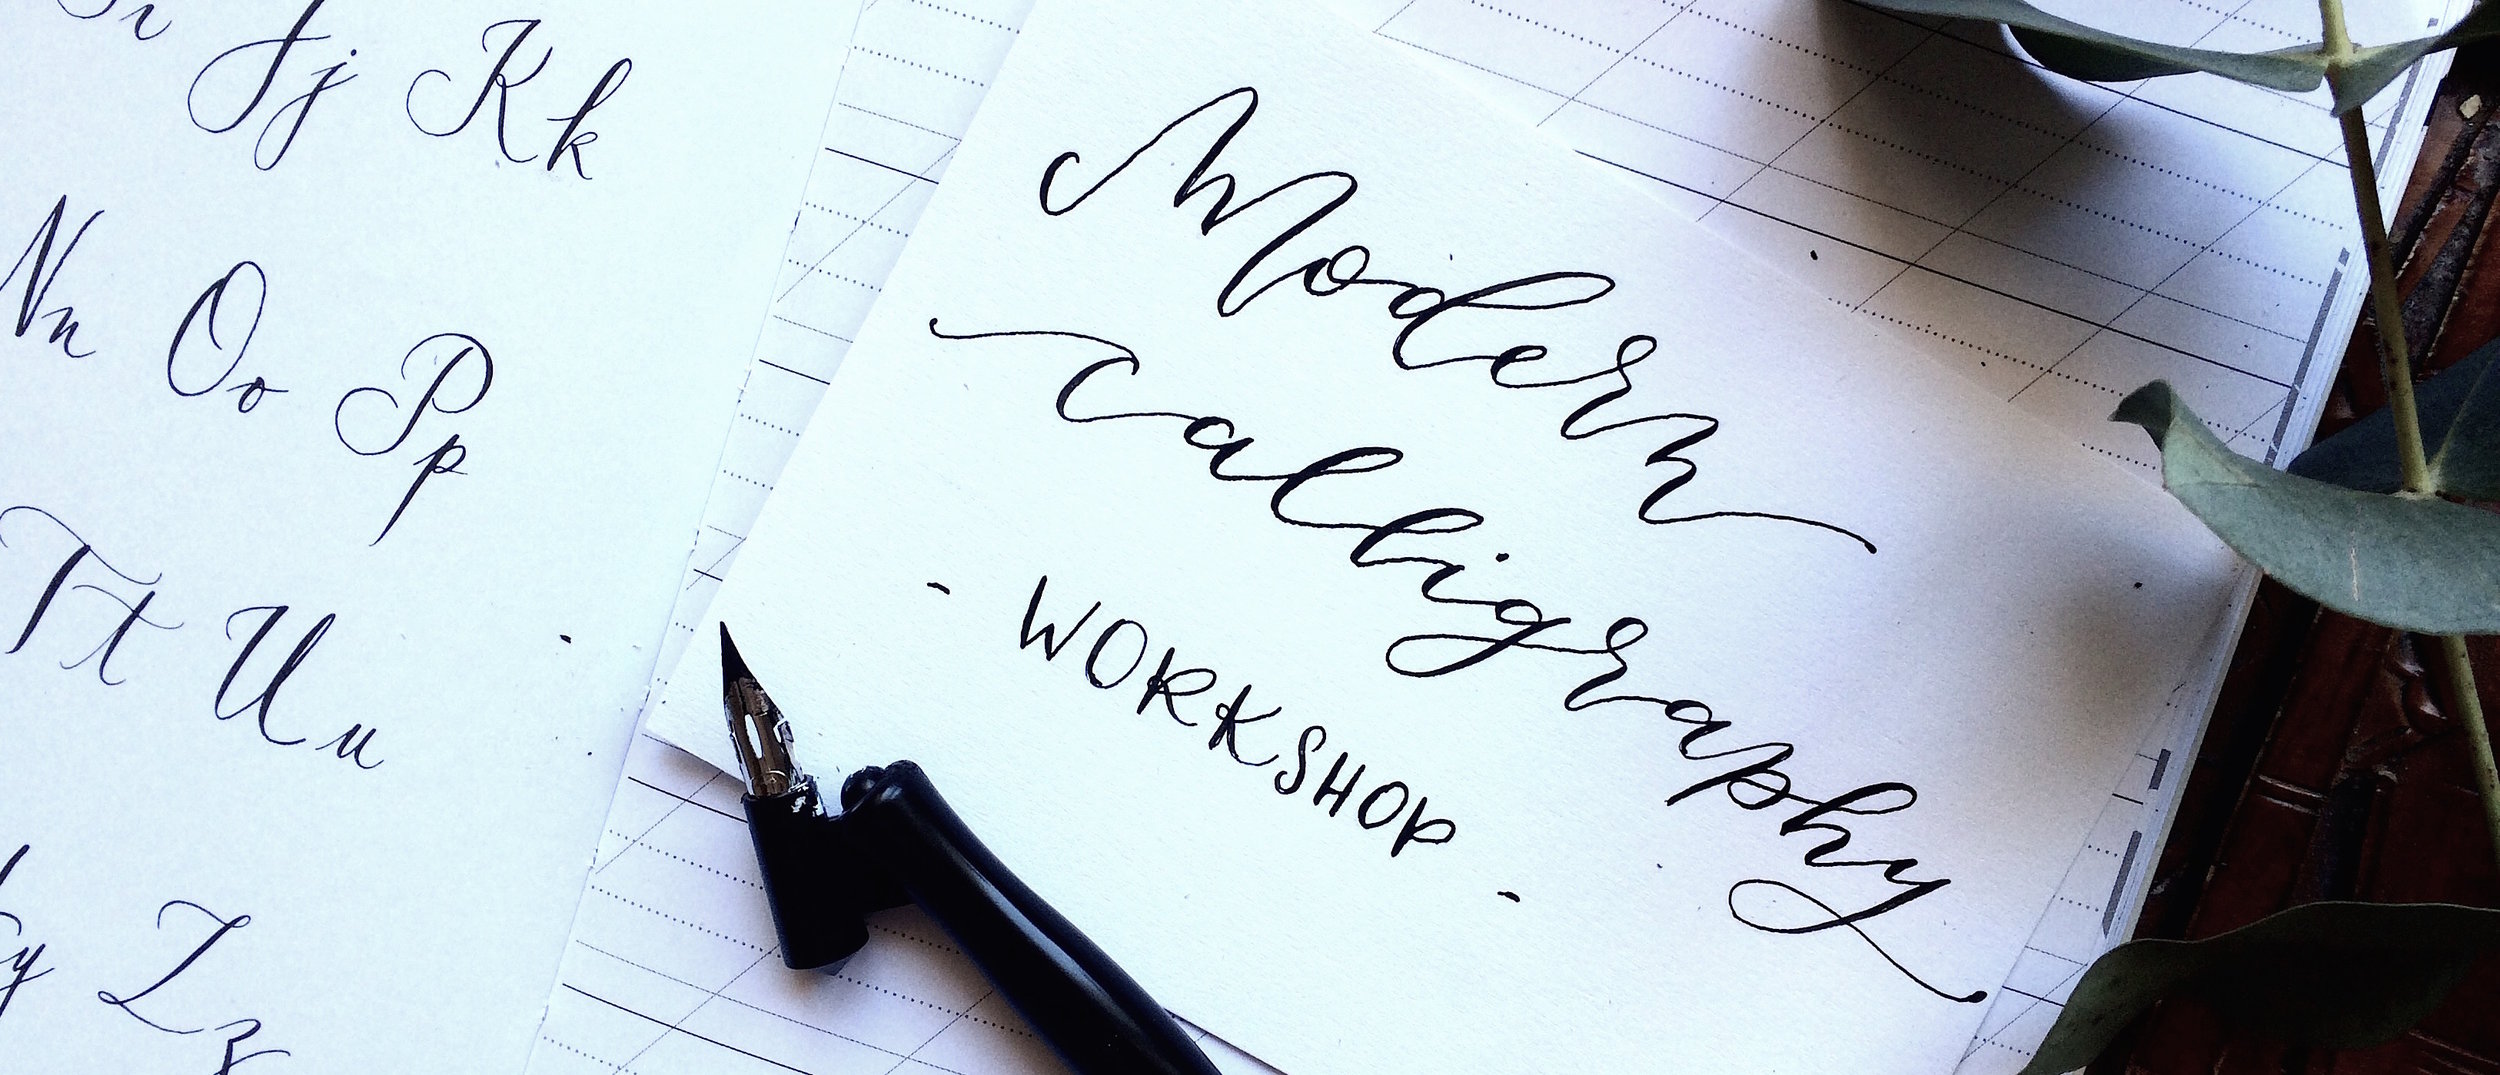 Jj Kk
Nn Oo Pp
Tt Uu
y Zz
Modern
Calligraphy
- WORKSHOP -